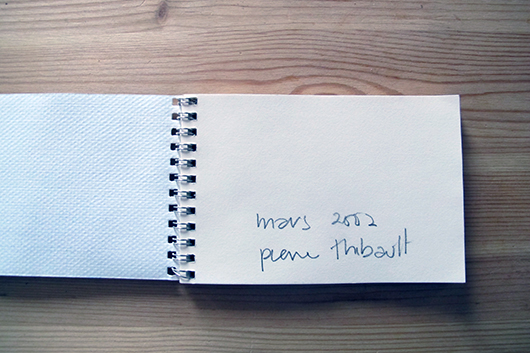 mars 2002
pierre thibault